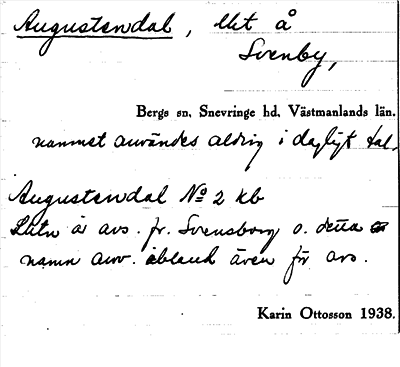 Augustendal, lht å
Svenby,
Bergs sn, Snevringe hd, Västmanlands län.
namnet användes aldrig i dagligt tal.
Augustendal No 2 kb
Lhtn är avs. fr. Svensborg o. detta
namn anv. ibland även för avs.
Karin Ottosson 1938.